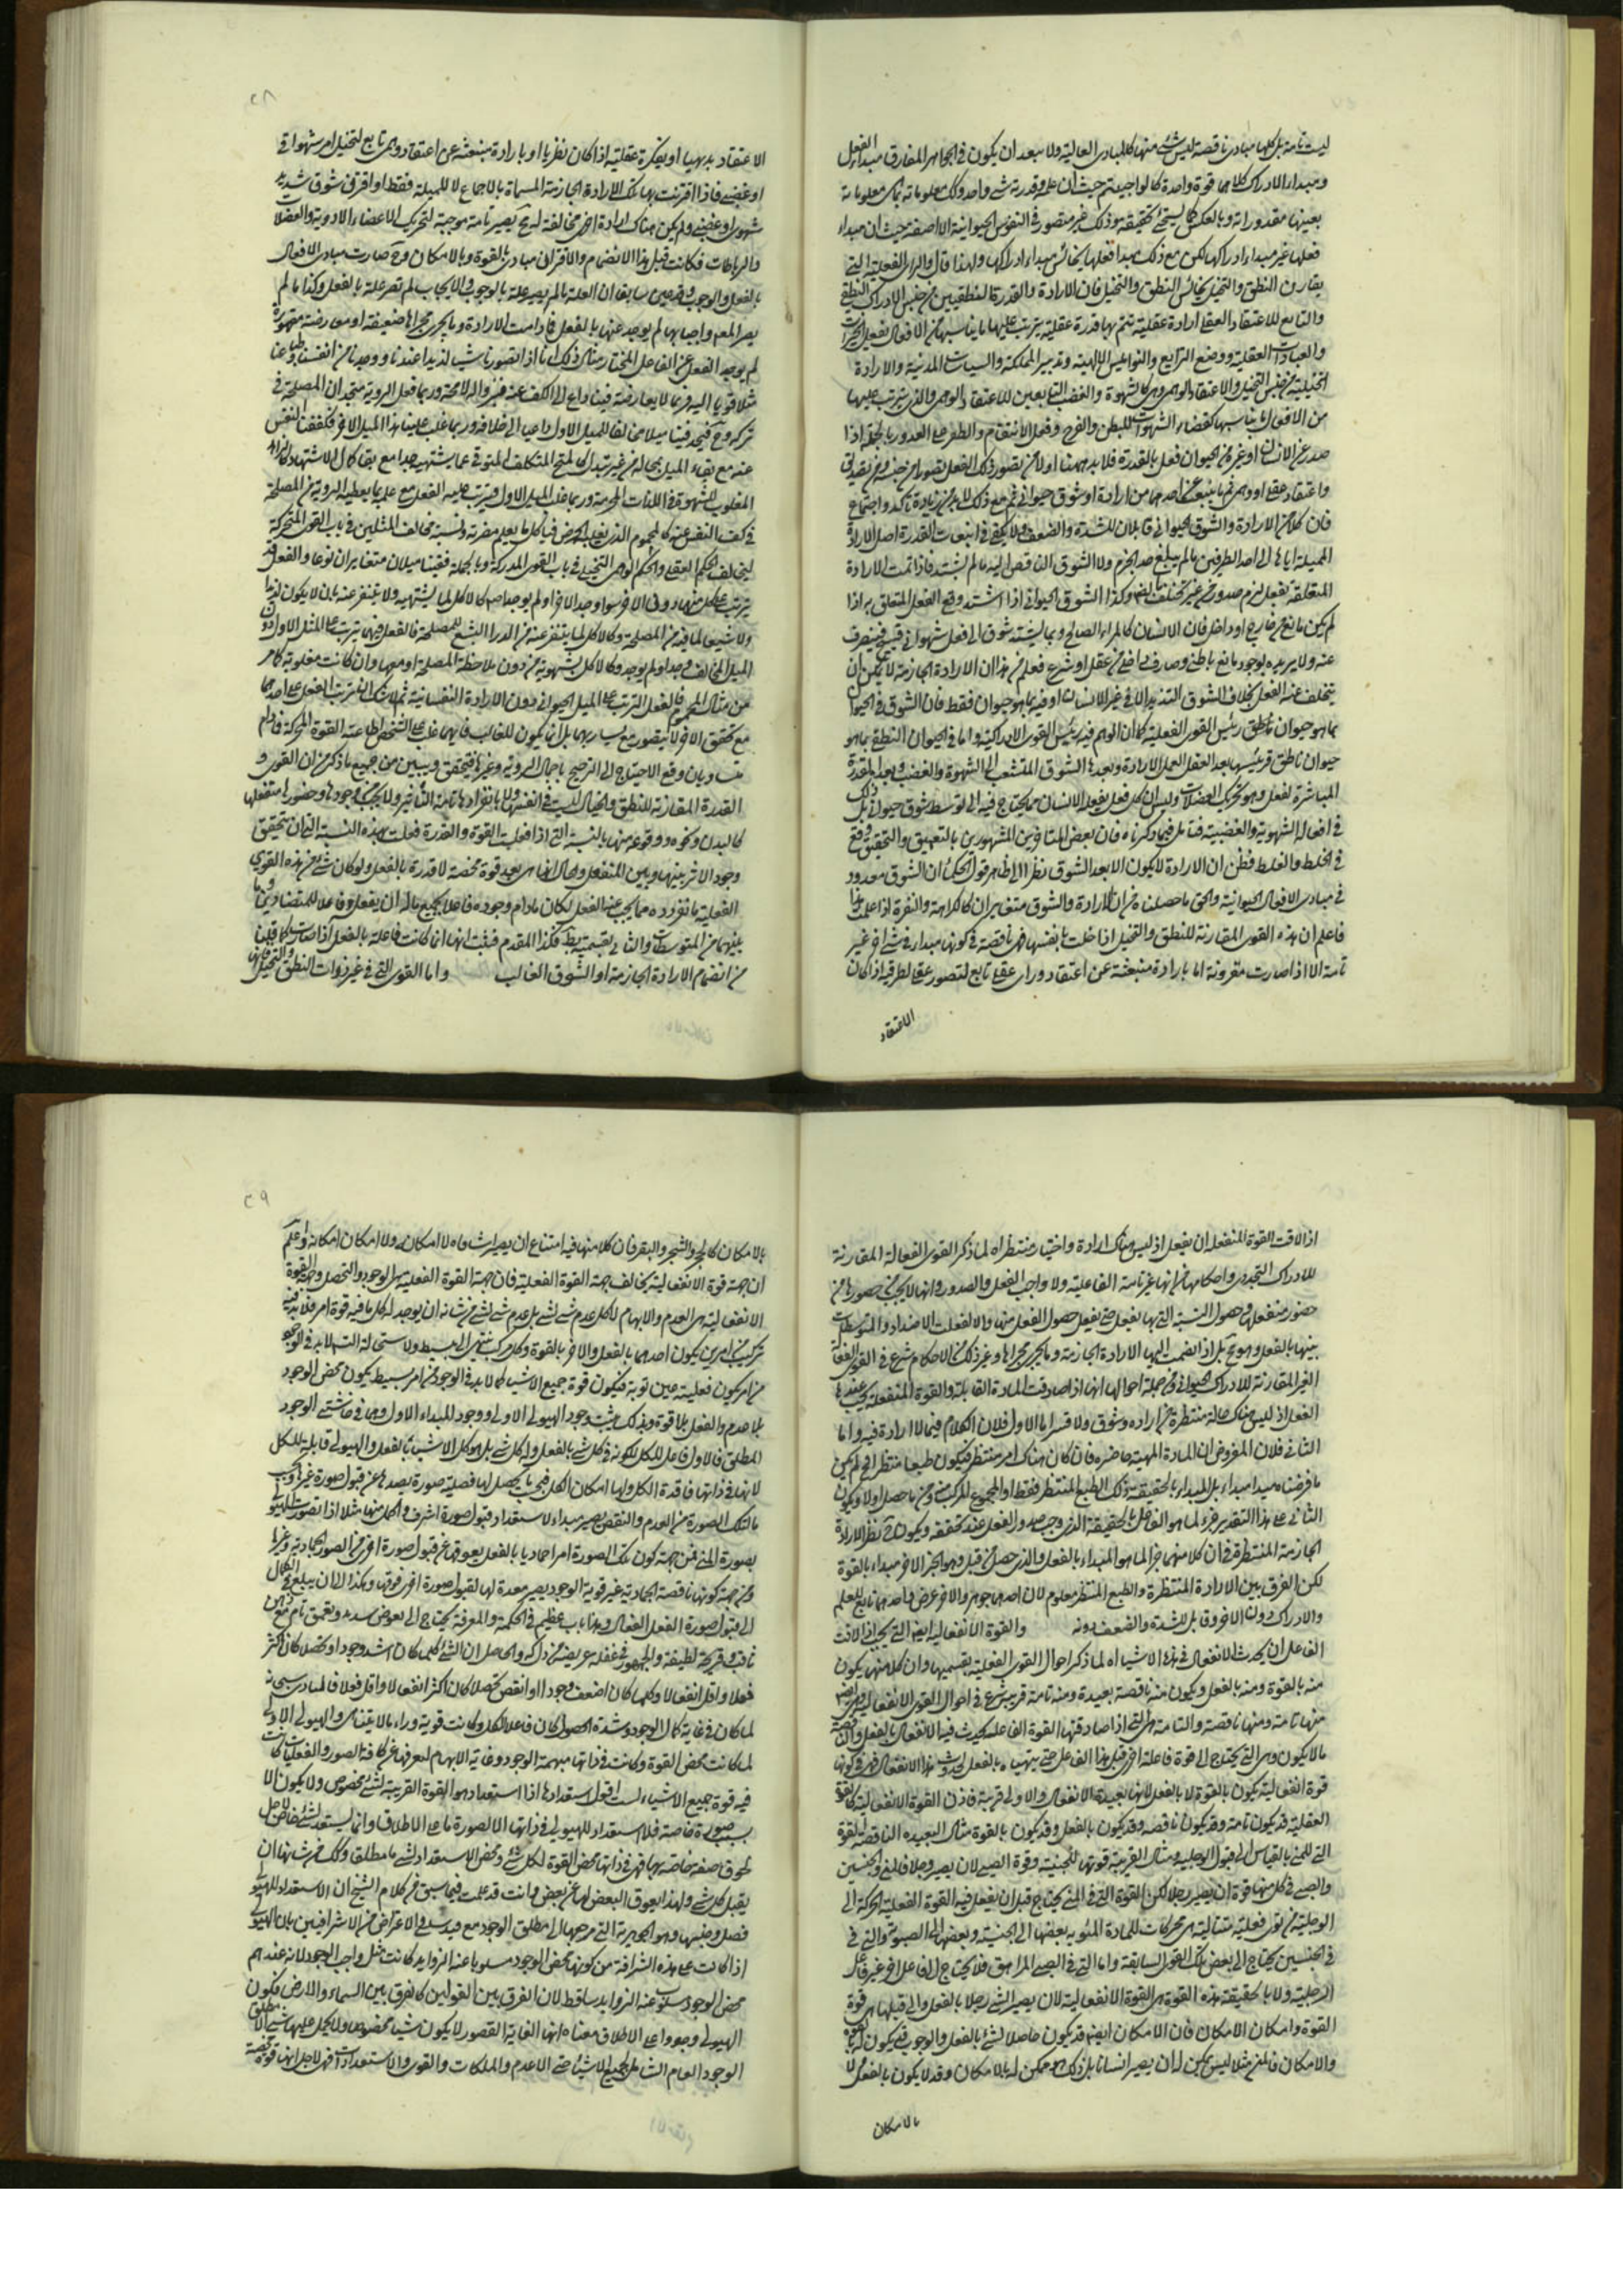 ليست تامة بل كلها مبادى ناقصة ليس شئ منها كالمبادى العالية ولا يبعد ان يكون فى الجواهر المفارق مبداء الفعل
ومبداء الادراك كلاهما قوة واحدة كالواجب تم حيث ان علمه وقدرته شئ واحد وكل معلوماته بما هى معلوماته
بعينها مقدوراته وبالعكس كما يستحق تحقيقه وذلك غير متصور فى النفوس الحيوانية الا ضعفه حيث ان مبداء
فعلها غير مبداء ادراكها لكن مع ذلك مبدا فعلها يجانس مبداء ادراكها ولهذا قال والمراد الفعلية التى
يقارن النطق والتخيل يجانس النطق والتخيل فان الارادة والقدرة المنطقيين من جنس الادراك النطقى
والتابع للاعتقاد العقلى ارادة عقلية تتم بها قدرة عقلية يترتب عليها ما يناسبها من الافعال كفعل الخيرات
والعبادات العقلية ووضع الشرايع والنواميس الالهية وتدبير المملكة والسياسات المدنية والارادة
التخيلية من جنس التخيل والاعتقاد الوهمى وهى كالشهوة والغضب التابعين للاعتقاد الوهمى والذى يترتب عليها
من الافعال ما يناسبها كقضاء الشهوات للبطن والفرج وفعل الانتقام والظفر على العدو وبالجملة اذا
صدر عن الانسان او غيره من الحيوان فعل بالقدرة فلا بد هيهنا اولا من تصور ذلك الفعل تصورا من جنسه ومن تصديق
واعتقاد عقلى او وهمى ثم ما ينبعث عن احدهما من ارادة او شوق حيوانى ثم مع ذلك لابد من زيادة تاكد واجتماع
فان كلا من الارادة والشوق الحيوانى قابلان للشدة والضعف ولا يكفى فى انبعاث القدرة اصل الارادة
المميلة اياها الى احد الطرفين ما لم يبلغ حد الجزم ولا الشوق الناقص اليه ما لم يشتد فاذا تمت الارادة
المتعلقة بفعل لزم صدوره من غير تخلف ايضا وكذا الشوق الحيوانى اذا اشتد وقع الفعل المتعلق به اذا
لم يكن مانع من خارج او داخل فان الانسان كالمراء الصالح ربما يشتد شوقه الى فعل شهوانى قبيح فينصرف
عنه ولا يريده لوجود مانع باطنى وصارف داخلى من عقل او شرع فعلم من هذا ان الارادة الجازمة لا يمكن ان
يتخلف عنه الفعل بخلاف الشوق الشديد الا فى غير الانسان او فيه بما هو حيوان فقط فان الشوق فى الحيوان
بما هو حيوان ناطق رئيس القوى الفعلية كما ان الوهم فيه رئيس القوى الادراكية واما فى الحيوان النطقى بما هو
حيوان ناطق فرئيسها بعد العقل العملى الارادة وبعدها الشوق المتشعب الى الشهوة والغضب وبعدها القدرة
المباشرة للفعل وهو تحريك العضلات وليس ان كل فعل يفعله الانسان مما يحتاج فيه الى توسط شوق حيوانى بل ذلك
فى افعاله الشهوية والغضبية فتامل فيما ذكرناه فان بعض المتاخرين المشهورين بالتعميق والتحقيق وقع
فى الخلط والغلط فظن ان الارادة لا يكون الا بعد الشوق نظرا الى ظاهر قول الحكماء ان الشوق معدود
فى مبادى الافعال الحيوانية والحق ما حصلناه من ان الارادة والشوق متغايران كالكراهة والنفرة اذا علمت هذا
فاعلم ان هذه القوى المقارنة للنطق والتخيل اذا خلت بانفسها فهى ناقصة فى كونها مبداء فى شئ اخر غير
تامة الا اذا صارت مقرونة اما بارادة منبعثة عن اعتقاد وراى عقلى تابع لتصور عقلى لطرفيه اذا كان
الاعتقاد
٢٨
الاعتقاد بديهيا او بفكرة عقلية اذا كان نظريا او بارادة منبعثة عن اعتقاد وهمى تابع لتخيل امر شهوانى
او غضبى فاذا اقترنت بها تلك الارادة الجازمة المسماة بالاجماع لا المميلة فقط او اقترن شوق شديد
شهوى او غضبى ولم يكن هناك ارادة اخرى مخالفة له ح يصير تامة موجبة لتحريك الاعضاء الادوية والعضلات
والرباطات فكانت قبل هذا الانضمام والاقتران مبادى بالقوة وبالامكان وح صارت مبادى للافعال
بالفعل والوجوب وقد مر سابقا ان العلة ما لم يصير علة بالوجوب والايجاب لم تصر علة بالفعل وكذا ما لم
يصر المعلول واجبا بها لم يوجد عنها بالفعل فما دامت الارادة وما يجرى مجراها ضعيفة او معارضة مقهورة
لم يوجد الفعل عن الفاعل المختار مثال ذلك انا اذا تصورنا شيئا لذيذا عندنا ووجدنا من انفسنا وطباعنا
مثلا قويا اليه فربما لا يعارضه فينا داع الى الكف عنه فنزاوله لا محة وربما فعل الروية فنجد ان المصلحة فى
تركه وح فنجد فينا ميلا مخالفا للميل الاول داعيا الى خلافه وربما غلب علينا هذا الميل الاخر فكففنا النفس
عنه مع بقاء الميل بحاله من غير تبدل كالمتحمى المتكلف المتوقى عما يشتهيه جدا مع بقاء كمال الاشتهاء وكالزاهد
المغلوب للشهوة فى اللذات المحرمة وربما غلب الميل الاول فيترتب عليه الفعل مع علمه بما يعطيه الروية من المصلحة
فى كف النفس عنه كالمحموم الذى يغلبه الحرص فياكل ما يعلم مضرته ونسبة تخالف المثلين فى باب القوى المتحركة
الى تخالف الحكم العقلى والحكم الوهمى التخيلى فى باب القوى المدركة وبالجملة ففينا ميلان متغايران نوعا والفعل قد
يترتب على كل منهما دون الاخر سواء وجد الاخر او لم يوجد اصلا كالاكل لما يشتهيه ولا يتنفر عنه بان لا يكون لذيذا
ولا شيعا لما فيه من المصلحة وكالاكل لما يتنفر عنه من الدواء البشع للمصلحة فالفعل فيهما يترتب على المثل الاول دون
الميل المخالف وجد او لم يوجد وكالاكل بشهوية من دون ملاحظة المصلحة او معها وان كانت مغلوبة كما مر
من مثال المحموم فالفعل المترتب على الميل الحيوانى دون الارادة النفسانية ثم لا شك ان ترتب الفعل على احدهما
مع تحقق الاخر لا يتصور مع تساويهما بل انما يكون للغالب فايهما غلب على الشخص اطاعته القوة المحركة فما دام
متساويان وقع الاحتياج الى الترجيح باجمال الروية وغيرها فتحقق وتبين من جميع ما ذكر من ان القوى و
القدرة المقارنة للنطق والخيال ليست فى انفسها ولا بانفرادها تامة التاثير ولا يجب من وجودها وحضورها منفعلها
كالبدن ونحوه ووقوعه منها بالنسبة التى اذا فعلت القوة والقدرة فعلت بهذه النسبة الى ان يتحقق
وجود الاثر بينها وبين المنفعل وحال انها هى بعد قوة محضة لا قدرة بالفعل ولو كان شئ من هذه القوى
الفعلية ما نفرده مما يجب عنه الفعل لكان ما دام وجوده فاعلا بجميع ما له ان يفعل وفاعلا للمتضادين وما
بينهما من المتوسطات والتالى بقسميه بط فكذا المقدم فثبت انها انما كانت فاعلة بالفعل اذا صارت كما قلنا
من انضمام الارادة الجازمة او الشوق الغالب واما القوى التى فى غير ذوات النطق والتخيل فانها
اذا لاقت القوة المنفعلة ان يفعل اذ ليس هناك ارادة واختيار منتظر اه لما ذكر القوى الفعالة المقارنة
للادراك التجددى واحكامها من انها غير تامة الفاعلية ولا واجب الفعل والصدور وانها لا يجب من حضورها من
حضور منفعلها وحصول النسبة التى بها يفعل حتى يفعل حصول الفعل منها والا لفعلت الاضداد والمتوسطات
بينها بالفعل وهو مح بل اذا انضمت اليها الارادة الجازمة وما يجرى مجراها وغير ذلك من الاحكام شرع فى القوى الفعالة
الغير المقارنة للادراك الحيوانى فمن جملة احوالها انها اذا صادفت المادة القابلة والقوة المنفعلة يجب عندها
الفعل اذ ليس هناك حالة منتظرة من ارادة وشوق ولا قسر اما الاول فلان الكلام فيما لا ارادة فيه واما
الثانى فلان المفروض ان المادة المهيئة حاضرة فان كان هناك امر منتظر فيكون طبعا منتظرا فح لم يكن
ما فرضناه مبدا مبداء بل المبداء بالحقيقة ذلك الطبع المنتظر فقط او المجموع المركب منه ومن ما حصل اولا ويكون
الثانى على هذا التقدير جزء لما هو الفاعل بالحقيقة الذى وجب صدور الفعل عند تحققه ويكون ح نظير الارادة
الجازمة المنتظرة فان كلا منهما جزء لما هو المبداء بالفعل والذى حصل من قبل وهو الجزء الاخر مبداء بالقوة
لكن الفرق بين الارادة المنتظرة والطبع المنتظر معلوم لان احدهما جوهر والاخر عرض واحدهما تابع للعلم
والادراك دون الاخر وقابل للشدة والضعف دونه والقوة الانفعالية ايضا التى يجب اذا لاقت
الفاعل ان يحدث الانفعال فى هذه الاشياء اه لما ذكر احوال القوى الفعلية بقسميها وان كلا منها يكون
منه بالقوة ومنه بالفعل ويكون منه ناقصة بعيدة ومنه تامة قريبة شرع فى احوال القوى الانفعالية وهى ايضا
منها تامة ومنها ناقصة والتامة هى التى اذا صادفتها القوة الفاعلة يحدث فيها الانفعال بالفعل والناقصة
ما لا يكون وهى التى يحتاج الى قوة فاعلة اخرى قبل هذا الفاعل حتى يتهيا ه بالفعل لحدوث هذا الانفعال فهى فى كونها
قوة انفعالية يكون بالقوة لا بالفعل لانها بعيدة الانفعال والاولى قريبة فاذن القوة الانفعالية كالقوة
الفعلية قد يكون تامة وقد يكون ناقصة وقد يكون بالفعل وقد يكون بالقوة مثال البعيدة الناقصة القوة
التى للمنى بالقياس الى قبول الرجلية ومثال القريبة قوتها للجنينية وقوة الصبى لان يصير رجلا فالمنى والجنين
والصبى فى كل منها قوة ان يصير رجلا لكن القوة التى فى المنى يحتاج قبل ان يفعل فيه القوة الفعلية المحركة الى
الرجلية من قوى فعلية متتالية هى محركات للمادة المنوية بعضها الى الجنينية وبعضها الى الصبوة والتى فى
فى الجنين يحتاج الى بعض تلك القوى السابقة واما التى فى الصبى المراهق فلا يحتاج الى فاعل اخر غير فاعل
الرجلية ولا بالحقيقة هذه القوة هى القوة الانفعالية لان يصير الشئ رجلا بالفعل والى قبلها هى قوة
القوة وامكان الامكان فان الامكان ايضا قد يكون حاصلا لشئ بالفعل والوجوب فيكون له بالقوة
والامكان فالمنى مثلا ليس يمكن له ان يصير انسانا بل ذلك ممكن له بالامكان وقد لا يكون بالفعل ولا
بالامكان
٢٩
بالامكان كالحجر والشجر والبقر فان كلا منها فيه امتناع ان يصير انسانا ه لا امكان ولا امكان امكان واعلم
ان جهة قوة الانفعالية يخالف جهة القوة الفعلية فان جهة القوة الفعلية هى الوجود والتحصل وجهة القوة
الانفعالية هى العدم والابهام لا كل عدم شئ لشئ بل عدم شئ لشئ من شانه ان يوجد له كل ما فيه قوة امر فلا بد فيه
تركيب من امرين يكون احدهما بالفعل والاخر بالقوة وكل مركب ينتهى الى البسيط ولاستحالة التس لابد فى الوجود
من امر يكون فعليته عين قوته فيكون قوة جميع الاشياء كما لابد فى الوجود من امر بسيط يكون محض الوجود
بلا عدم والفعل بلا قوة وبذلك يثبت وجود الهيولى الاولى ووجود المبداء الاول وهما فى حاشيتى الوجود
المطلق فالاول فاعل للكل لكونه فى كل شئ بالفعل وله كل شئ بل هو كل الاشياء بالفعل والهيولى قابلية للكل
لانها فى ذاتها فاقدة الكل ولها امكان الكل فيجب ما يحصل لها فصلية صورة يصدها عن قبول صورة غيرها ويجب
ما لتلك الصورة من العدم والنقص يصير مبداء لاستعداد قبول صورة اشرف واكمل منها مثلا اذا تصورت الهيولى
بصورة المنى فمن جهة كون تلك الصورة امرا جماديا بالفعل يعوقها عن قبول صورة اخرى من الصور الجمادية وغيرها
ومن جهة كونها ناقصة الجمادية غير قوية الوجود يصير معدة لها لقبول صورة اخرى فوقها وهكذا الى ان يبلغ الكمال
الى قبول صورة العقل الفعال وهذا باب عظيم فى الحكمة والمعرفة يحتاج الى غوص شديد وتعمق تام مع ذهن
ثاقب وقريحة لطيفة والجمهور فى غفلة عريضة من ذلك والحاصل ان الشئ كلما كان اشد وجودا وتحصلا كان اكثر
فعلا واقل انفعالا وكلما كان اضعف وجودا وانقص تحصلا كان اكثر انفعالا واقل فعلا فالبارى سبحانه
لما كان فى غاية كمال الوجود وشدة الحصول كان فاعلا للكل وكانت قوته وراء ما لا يتناهى والهيولى الاولى
لما كانت محض القوة وكانت فى ذاتها مبهمة الوجود وغاية الابهام لتعرفها عن كافة الصور والفعليات كانت
فيه قوة جميع الاشياء لست اقول استعدادها اذ الاستعداد هو القوة القريبة لشئ مخصوص ولا يكون الا
بسبب صورة خاصة فلا استعداد للهيولى فى ذاتها الا لصورة ما على الاطلاق وانما يستعد لشئ خاص لاجل
لحوق صفة خاصة بها فهى فى ذاتها محض القوة لكل شئ ومحض الاستعداد لشئ ما مطلقا وكل من شانها ان
يقبل كل شئ ولهذا يعوق البعض لها عن بعض وانت قد علمت فيما سبق من كلام الشيخ ان الاستعداد للهيولى
فصل وجنسها وهو الجوهرية التى مرجعها الى مطلق الوجود مع قيد سلبى والاعتراض من الاشراقيين بان الهيولى
اذا كانت على هذه الشرافة من كونها محض الوجود مسلوبا عنه الزوايد كانت مثل واجب الوجود لانه عندهم
محض الوجود يسلب عنه الزوايد ساقط لان الفرق بين القولين كالفرق بين السماء والارض فكون
الهيولى وجودا على الاطلاق معناه انها لغاية القصور لا يكون شيئا مخصوص ولا يحمل عليها شئ الا مطلق
الوجود العام الشامل لجميع الاشياء حتى الاعدام والملكات والقوى والاستعدادات فهى لاجل انها قوة محضة